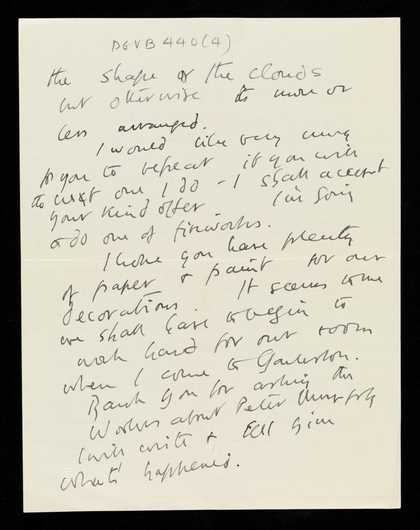 DGVB 440(4)
the shape of the clouds
but otherwise its more or
less arranged.
I would like very much
for you to repeat if you will
the next one I do – I shall accept
your kind offer I'm going
to do one of fireworks.
I hope you have plenty
of paper & paint for our
decorations. It seems to me
we shall have to begin to
work hard for our room
when I come to Charleston.
Thank you for asking the
Woolves about Peter
I will write & tell him
what's happened.